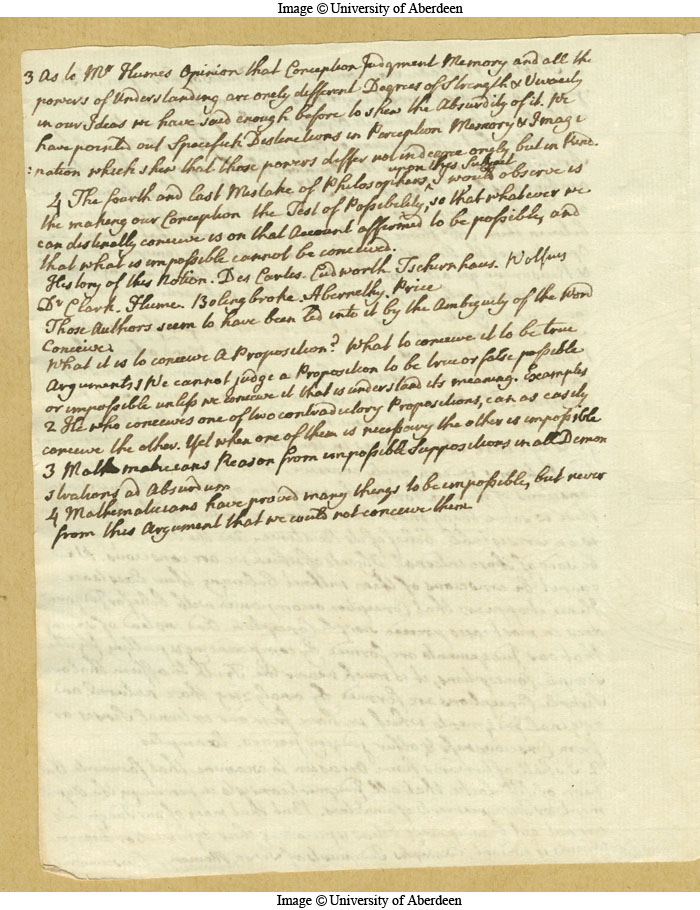 Image © University of Aberdeen
3 As to Mr Humes Opinion that Conception Judgment Memory and all the
powers of Understanding are onely different Degrees of Strength & Vivacity
in our Ideas we have said enough before to shew the Absurdity of it. We
have pointed out Specifick Distinctions in Perception Memory & Imagi
:nation which shew that those powers differ not in degree onely but in kind.
4 The fourth and last Mistake of Philosophers upon this Subject I would observe is
the making our Conception the Test of Possibility, so that whatever we
can distinctly conceive is on that Account affirmed to be possible, and
that what is impossible cannot be conceived.
History of this Notion. Des Cartes. Cudworth Tschirnhaus. Wolfius
Dr Clark. Hume. Bolingbroke. Abernethy. Price
Those Authors seem to have been led into it by the Ambiguity of the Word
Conceive.
What it is to conceive A Proposition? What to conceive it to be true
Arguments 1 We cannot judge a Proposition to be true or false possible
or impossible unless we conceive it that is understand its meaning. Examples
2 He who conceives one of two contradictory Propositions, can as easily
conceive the other. Yet when one of them is necessary the other is impossible
3 Mathematicians Reason from impossible Suppositions in all Demon
strations ad Absurdum
4 Mathematicians have proved many things to be impossible, but never
from this Argument that we could not conceive them
Image © University of Aberdeen